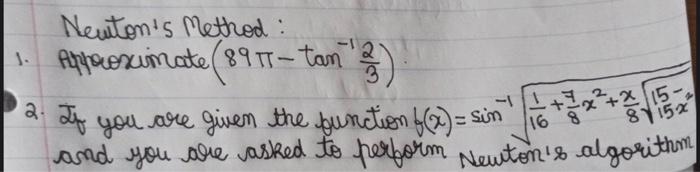 Newton's Method :
1. Approximate (89π - tan⁻¹ 2/3)
2. If you are given the function f(x) = sin⁻¹ √(1/16 + 7/8 x² + x/8 √(15 - 15x²))
and you are asked to perform Newton's algorithm